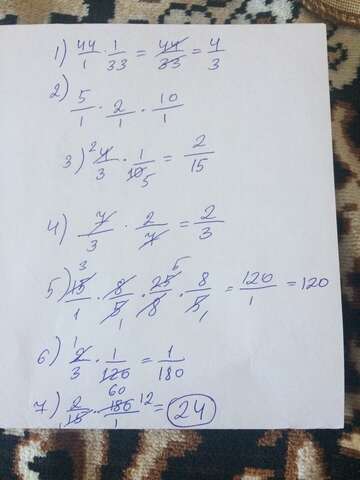 1) 44/1 · 1/33 = 44/33 = 4/3
2) 5/1 · 2/1 · 10/1
3) 2 4/3 · 1/10 5 = 2/15
4) 7/3 · 2/7 = 2/3
5) 3 15/1 · 8/5 1 · 25 5/8 · 8/5 1 = 120/1 = 120
6) 1 2/3 · 1/120 = 1/180
7) 2/15 1 · 60 180 12/1 = 24